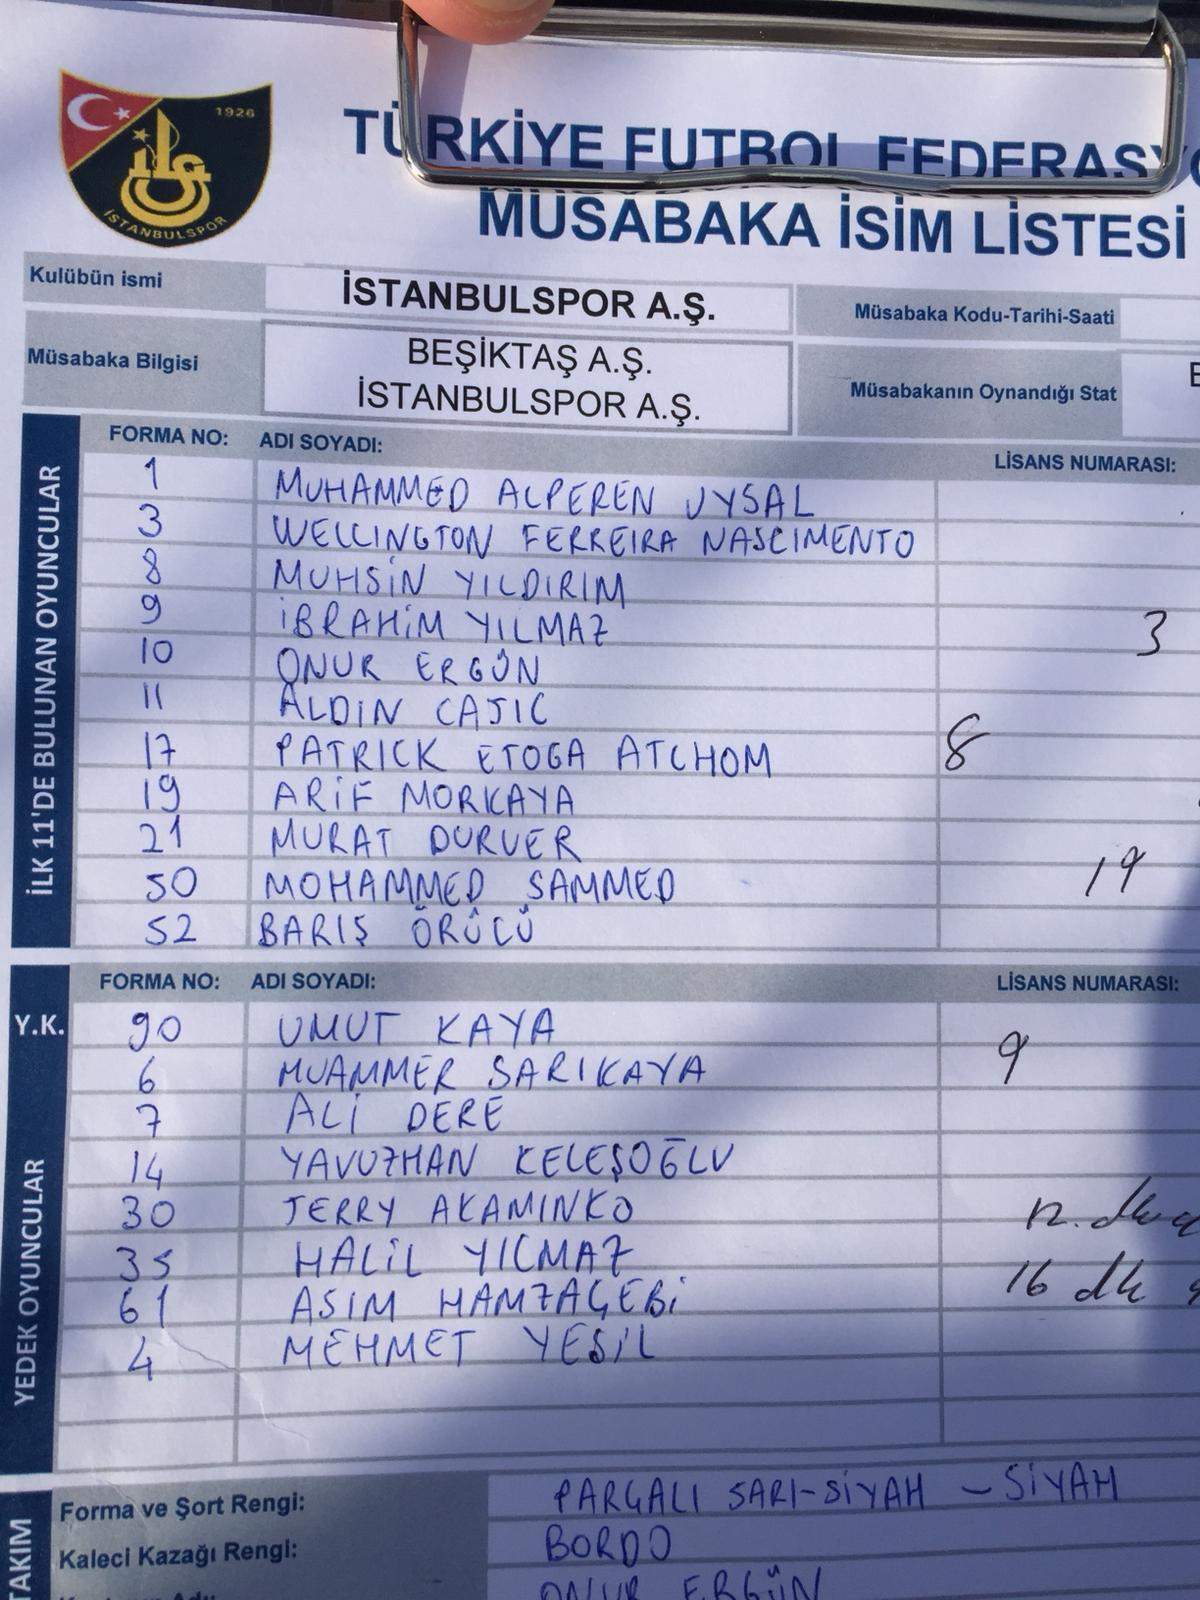 1926
İSTANBULSPOR
TÜRKİYE FUTBOL FEDERASYO
MÜSABAKA İSİM LİSTESİ
Kulübün ismi İSTANBULSPOR A.Ş. Müsabaka Kodu-Tarihi-Saati
Müsabaka Bilgisi BEŞİKTAŞ A.Ş. Müsabakanın Oynandığı Stat
İSTANBULSPOR A.Ş.
İLK 11'DE BULUNAN OYUNCULAR
FORMA NO: ADI SOYADI: LİSANS NUMARASI:
1 MUHAMMED ALPEREN UYSAL
3 WELLINGTON FERREIRA NASCIMENTO
8 MUHSİN YILDIRIM
9 İBRAHİM YILMAZ 3
10 ONUR ERGÜN
11 ALDİN CAJIC
17 PATRICK ETOGA ATCHOM 8
19 ARİF MORKAYA
21 MURAT DURUER
50 MOHAMMED SAMMED 19
52 BARIŞ ÖRÜCÜ
FORMA NO: ADI SOYADI: LİSANS NUMARASI:
Y.K. 90 UMUT KAYA
YEDEK OYUNCULAR
6 MUAMMER SARIKAYA 9
7 ALİ DERE
14 YAVUZHAN KELEŞOĞLU
30 JERRY AKAMINKO 12. dk
35 HALİL YILMAZ
61 ASIM HAMZAÇEBİ 16 dk
4 MEHMET YEŞİL
TAKIM
Forma ve Şort Rengi: PARÇALI SARI-SİYAH - SİYAH
Kaleci Kazağı Rengi: BORDO
ONUR ERGÜN